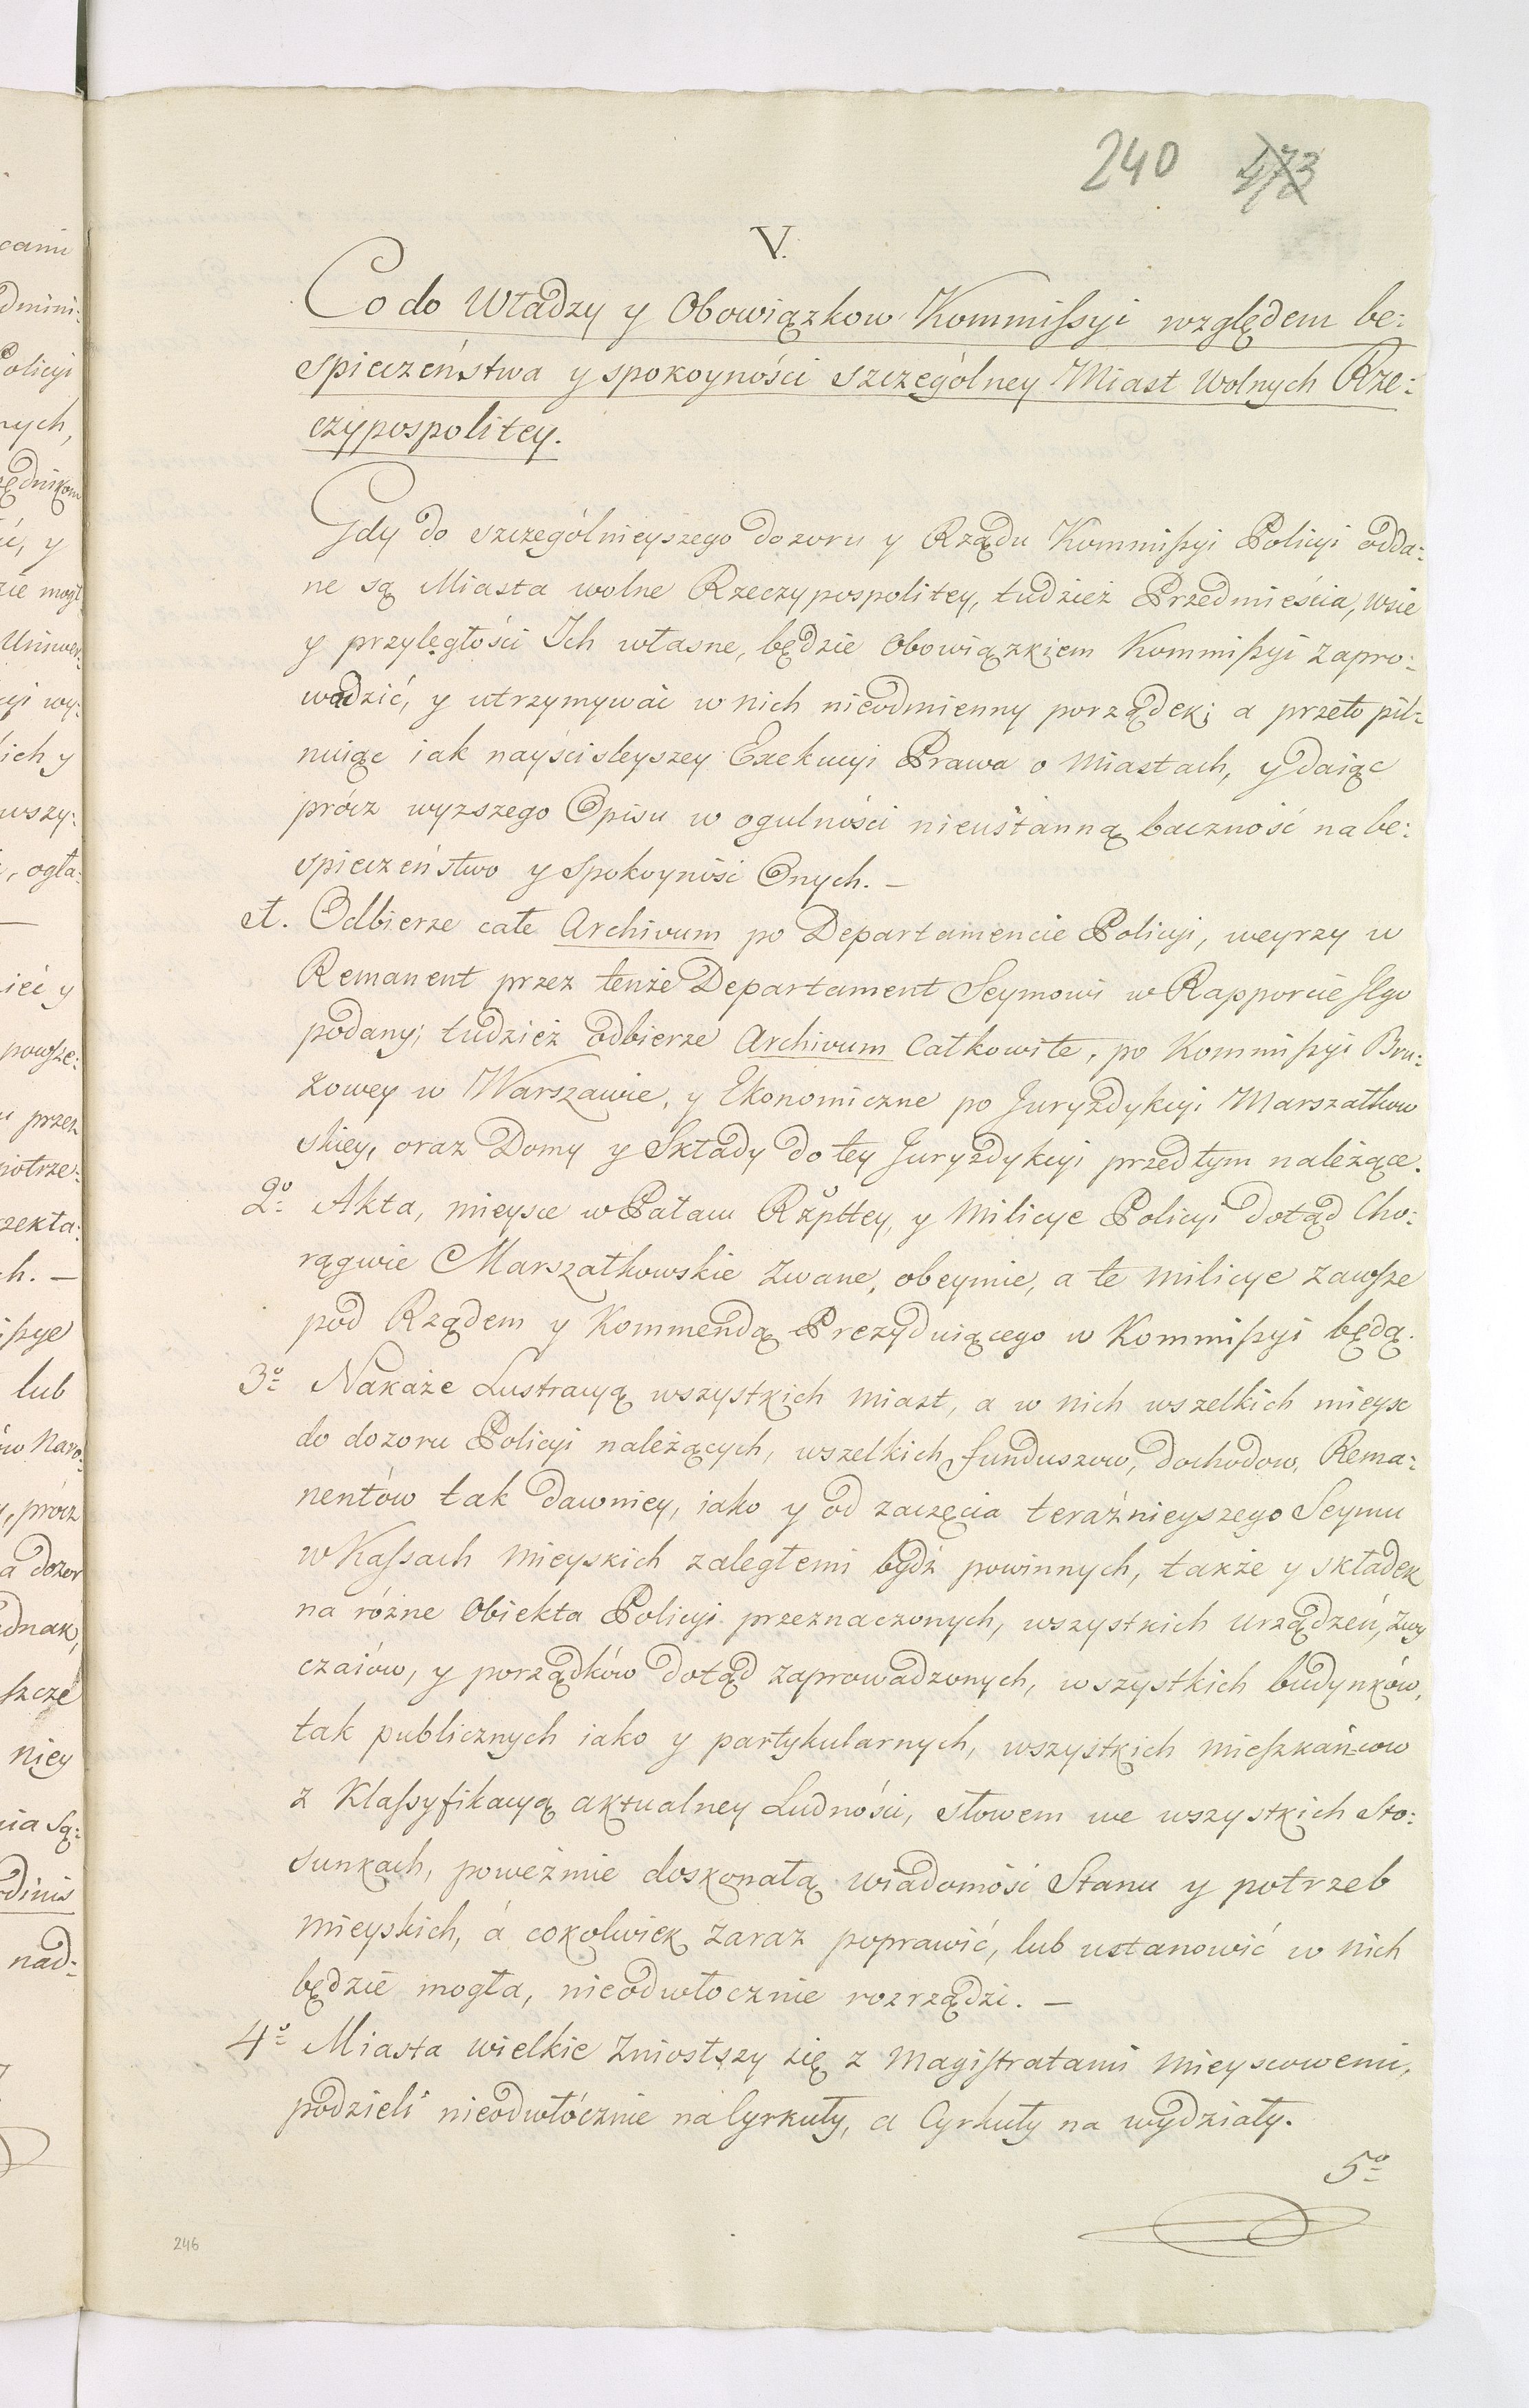 240 473
V.
Co do Władzy y Obowiązkow Kommissyi względem be:
spieczeństwa y spokoyności szczególney Miast Wolnych Rze:
czypospolitey.
Gdy do szczególnieyszego dozoru y Rządu Kommissyi Policyi odda:
ne są Miasta wolne Rzeczypospolitey, tudzież Przedmieścia, wsie
y przyległości Ich własne, będzie Obowiązkiem Kommissyi zapro:
wadzić, y utrzymywać w nich nieodmienny porządek; a przeto pil:
nuiąc iak nayściśleyszey Exekucyi Prawa o Miastach, y daiąc
prócz wyższego Opisu w ogulności nieustanną baczność na be:
spieczeństwo y Spokoyność Onych. —
Odbierze całe Archivum po Departamencie Policyi, weyrzy w
Remanent przez tenże Departament Seymowi w Rapporcie Jlgo
podany; tudzież odbierze Archivum Całkowite, po Kommissyi Bru:
kowey w Warszawie, y Ekonomiczne po Juryzdykcyi Marszałkow
skiey, oraz Domy y Składy do tey Juryzdykcyi przedtym należące.
2º Akta, mieysce w Pałacu Rzpttey, y Milicye Policyi dotąd Cho:
rągwie Marszałkowskie zwane, obeymie, a te milicye zawsze
pod Rządem y Kommendą Prezyduiącego w Kommissyi będą.
3º Nakaże Lustracyą wszystkich miast, a w nich wszelkich mieysc
do dozoru Policyi należących, wszelkich funduszow, dochodow, Rema:
nentów tak dawniey, iako y od zaczęcia teraźnieyszego Seymu
w Kassach Mieyskich zaległemi bydź powinnych, także y składek
na różne Obiekta Policyi przeznaczonych, wszystkich urządzeń, zwy
czaiów, y porządków dotąd zaprowadzonych, wszystkich budynków,
tak publicznych iako y partykularnych, wszystkich mieszkańcow
z Klassyfikacyą aktualney Ludności, słowem we wszystkich Sto:
sunkach, poweźmie doskonałą wiadomość Stanu y potrzeb
Mieyskich, á cokolwiek zaraz poprawić, lub ustanowić w nich
będzie mogła, nieodwłocznie rozrządzi. —
4º Miasta wielkie zniosłszy się z Magistratami Mieyscowemi,
podzieli nieodwłócznie na Cyrkuły, a Cyrkuły na wydziały.
5º
246